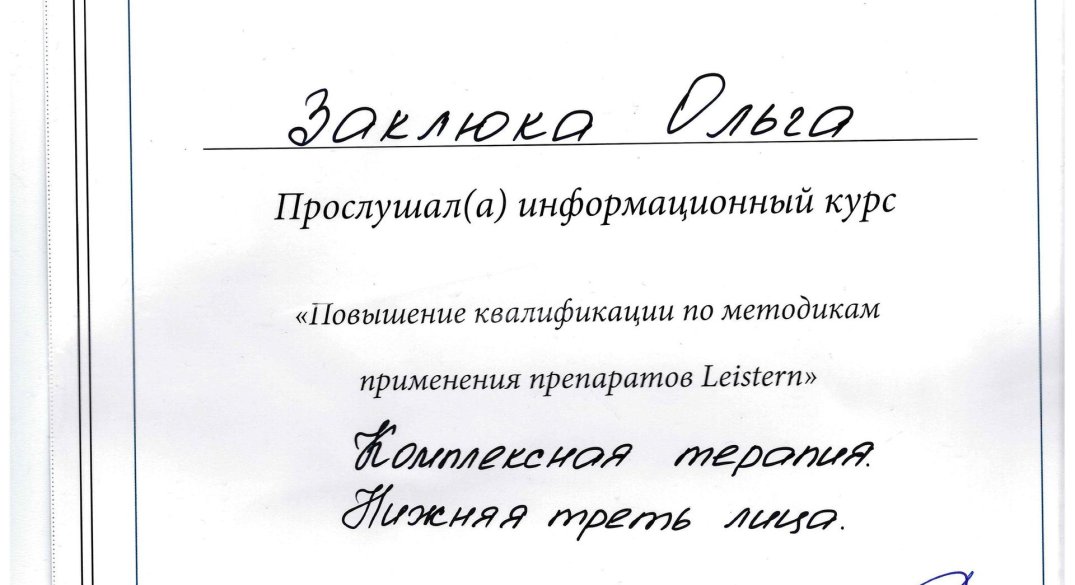 Заклюка Ольга
Прослушал(а) информационный курс
«Повышение квалификации по методикам
применения препаратов Leistern»
Комплексная терапия.
Нижняя треть лица.